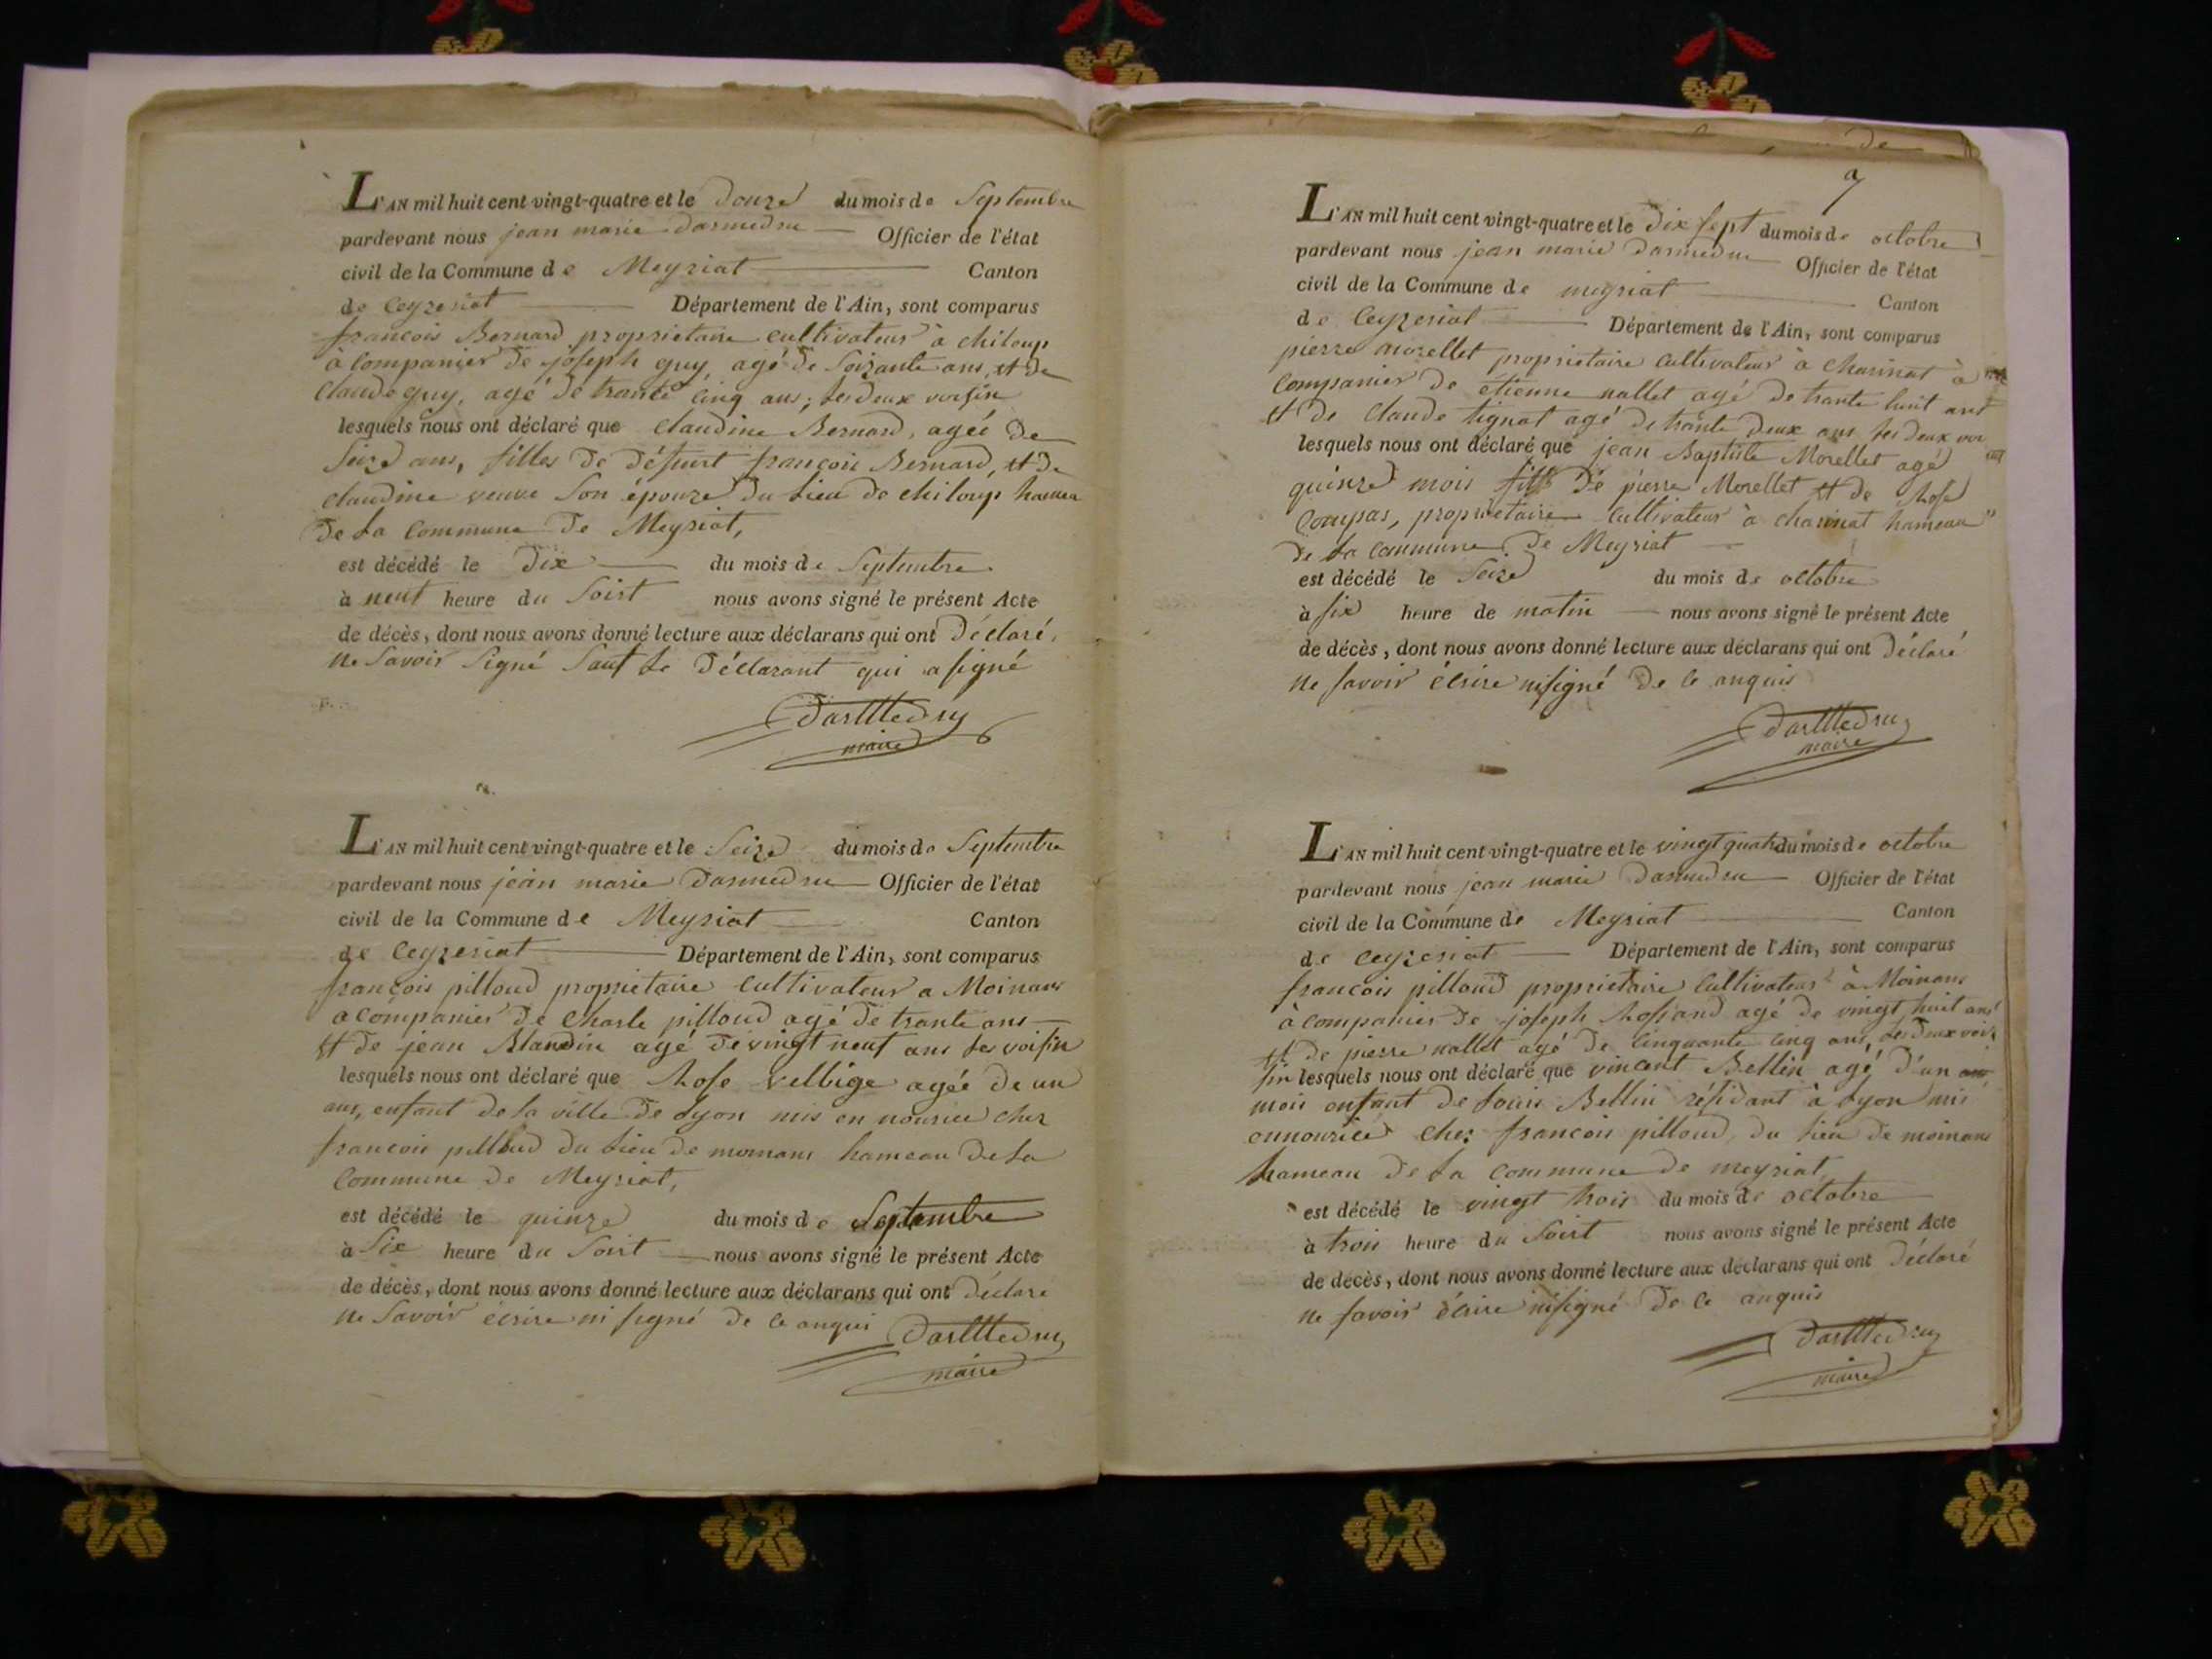 L'AN mil huit cent vingt-quatre et le Douze du mois de Septembre
pardevant nous jean marie Darmedru Officier de l'état
civil de la Commune de Meyriat Canton
de Ceyzeriat Département de l'Ain, sont comparus
francois Bernard propriétaire cultivateur à chiloup
à companier de joseph guy, agé de Soixante ans, et de
Claude guy, agé de trante cinq ans; les deux voisin
lesquels nous ont déclaré que Claudine Bernard, agéé de
Seize ans, filles de défunt françois Bernard, et de
claudine veuve Son épouze du Lieu de chiloup hameau
de La Commune de Meyriat,
est décédé le dix du mois de Septembre
à neuf heure du Soirt nous avons signé le présent Acte
de décès, dont nous avons donné lecture aux déclarans qui ont Déclaré,
ne Savoir Signé Sauf Le Déclarant qui a signé
Darmedru
maire
L'AN mil huit cent vingt-quatre et le Seize du mois de Septembre
pardevant nous jean marie Darmedru Officier de l'état
civil de la Commune de Meyriat Canton
de Ceyzeriat Département de l'Ain, sont comparus
françois pilloud propriétaire Cultivateur a Moinans
a companier de Charle pilloud agé de trante ans
et de jean Blandin agé de vingt neuf ans Les voisin
lesquels nous ont déclaré que Rose vellbige agéé de un
ans, enfant de la ville de Lyon mis en nourice chez
francois pilloud du Lieu de moinans hameau de La
Commune de Meyriat,
est décédé le quinze du mois de Septembre
à Six heure du Soirt nous avons signé le présent Acte
de décès, dont nous avons donné lecture aux déclarans qui ont Déclaré
ne Savoir écrire ni signé de ce anqui
Darmedru
maire
de
9
L'AN mil huit cent vingt-quatre et le Dix sept du mois de octobre
pardevant nous jean marie Darmedru Officier de l'état
civil de la Commune de meyriat Canton
de Ceyzeriat Département de l'Ain, sont comparus
pierre morellet propriétaire Cultivateur à Charinat à
Companier de étienne nallet agé de trante huit ans
et de Claude tignat agé de trante deux ans les deux voi
lesquels nous ont déclaré que jean Baptiste Morellet agé
quinze mois fils de pierre Morellet et de Rose
Compas, propriétaire Cultivateur à charinat hameau
de La Commune de Meyriat
est décédé le Seize du mois de octobre
à six heure de matin nous avons signé le présent Acte
de décès, dont nous avons donné lecture aux déclarans qui ont Déclaré
ne savoir écrire ni signé de ce anquis
Darmedru
maire
L'AN mil huit cent vingt-quatre et le vingt quatre du mois de octobre
pardevant nous jean marie Darmedru Officier de l'état
civil de la Commune de Meyriat Canton
de Ceyzeriat Département de l'Ain, sont comparus
francois pilloud propriétaire Cultivateur à Moinans
à companier de joseph Rossand agé de vingt huit ans
et de pierre nallet agé de Cinquante cinq ans, les deux voi
sin lesquels nous ont déclaré que vincent Bellin agé d'un
mois enfant de Louis Bellin résidant à Lyon mis
en nourice chez francois pilloud, du Lieu de moinans
hameau de La Commune de meyriat
est décédé le vingt trois du mois de octobre
à trois heure du Soirt nous avons signé le présent Acte
de décès, dont nous avons donné lecture aux déclarans qui ont Déclaré
ne savoir écrire ni signé de ce anquis
Darmedru
maire